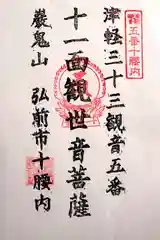 津軽三十三観音五番
十一面観世音菩薩
巖鬼山 弘前市十腰内
五番十腰内